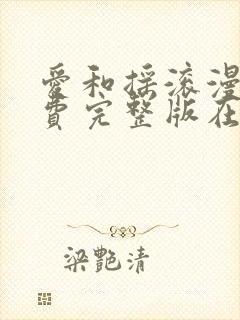 爱和摇滚漫
费完整版在
梁艷清